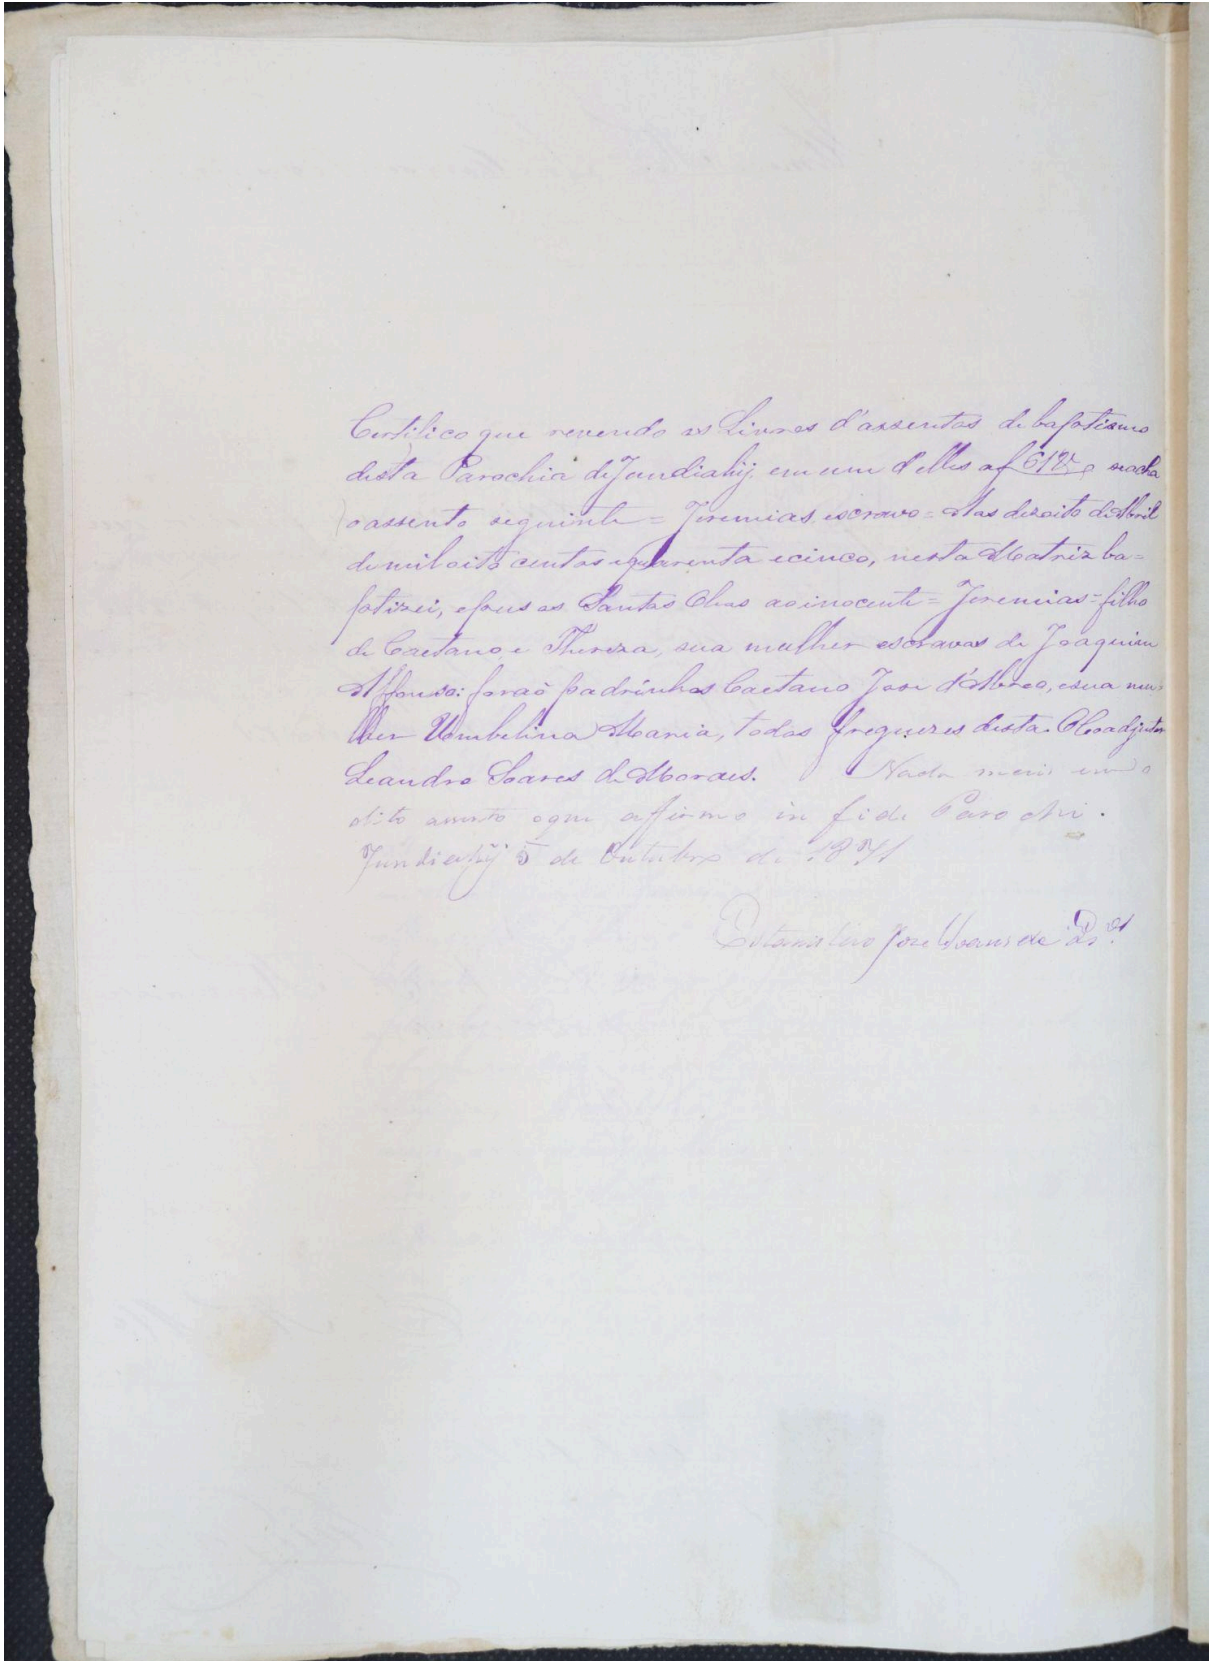 Certifico que revendo os Livros d'assentos de baptismo
desta Parochia de Jundiahÿ, em um d'elles a f 61 se acha
o assento seguinte = Jeremias escravo = Aos dezoito de Abril
de mil oito centos e quarenta e cinco, nesta Matriz ba=
ptizei, e pus os Santos Oleos ao inocente = Jeremias = filho
de Caetano e Thereza, sua mulher escravos de Joaquim
Affonso: foraõ padrinhos Caetano Jose d'Abreo, e sua mu=
lher Umbelina Maria, todos freguezes desta. O Coadjutor
Leandro Soares de Moraes. Nada mais em o
dito assento o que affirmo in fide Parochi.
Jundiahÿ 5 de Outubro de 1871
Jose de